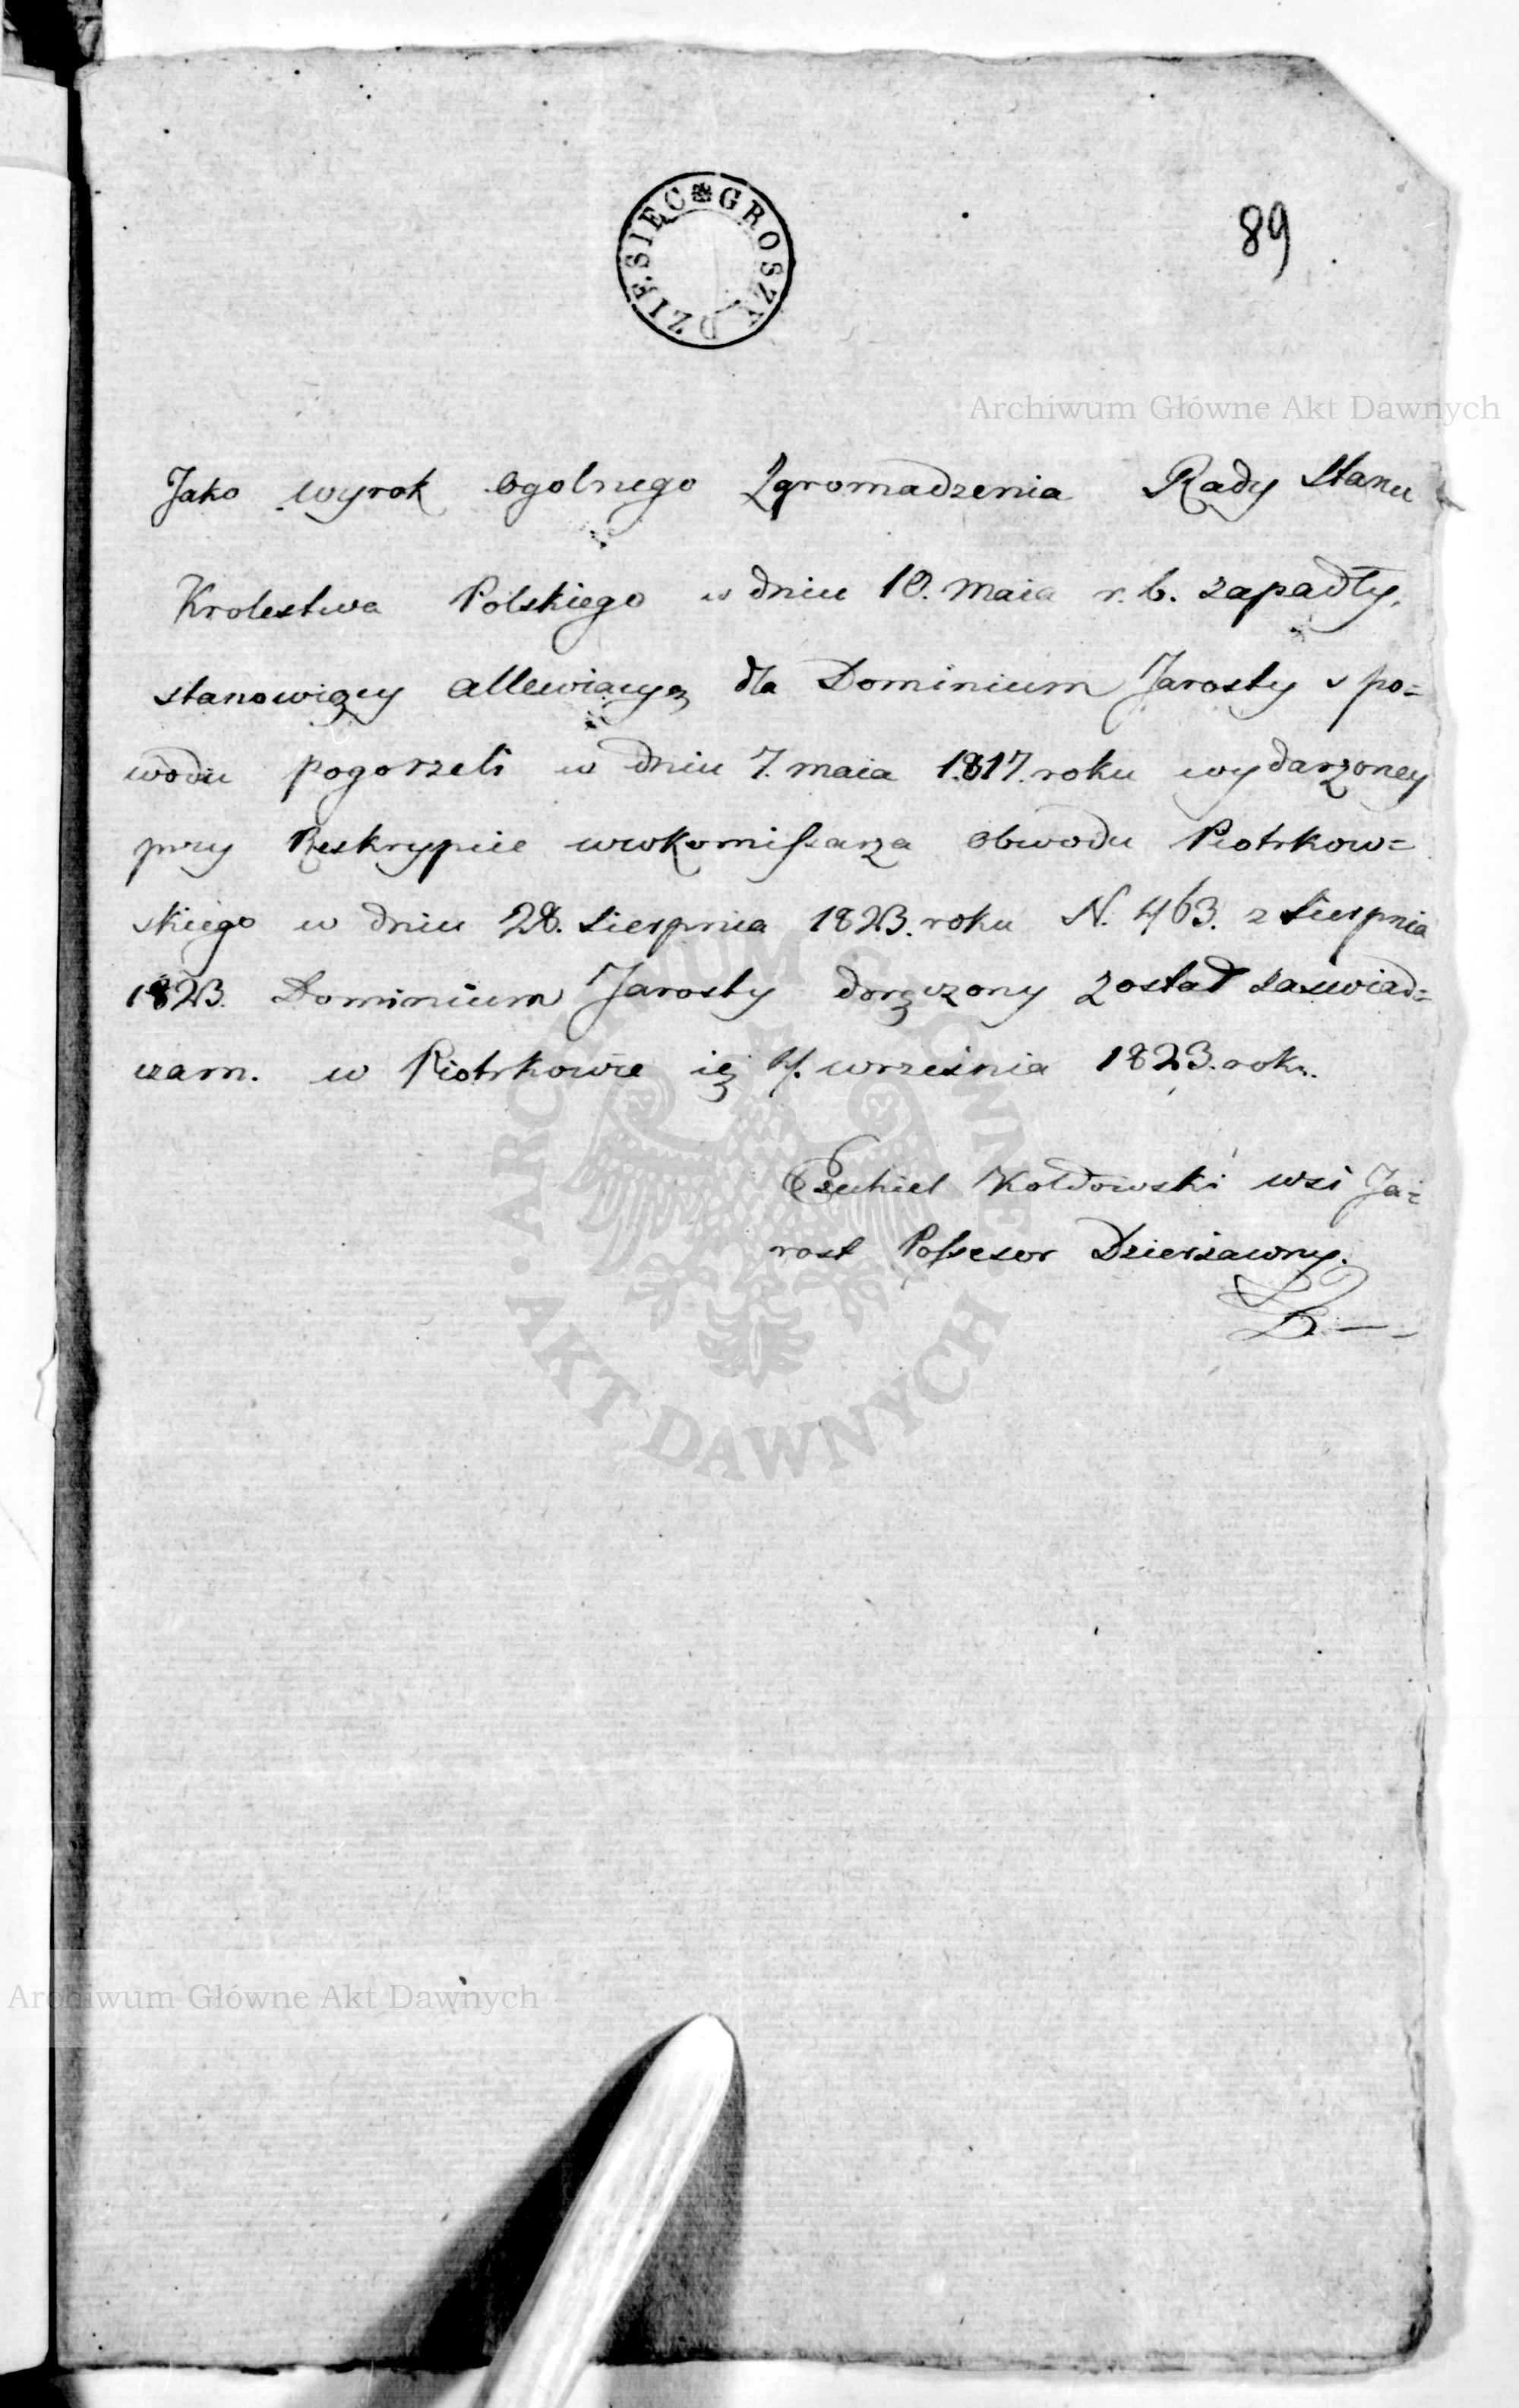 DZIESIĘC GROSZY
89
Archiwum Główne Akt Dawnych
Jako wyrok ogolnego Zgromadzenia Rady Stanu
Krolestwa Polskiego w dniu 10. maia r. b. zapadły,
stanowiący allewiacyą dla Dominium Jarosty s po=
wodu pogorzeli w dniu 7. maia 1817. roku wydarzoney
przy Reskrypcie wwkomissarza obwodu Piotrkow=
skiego w dniu 28. Sierpnia 1823. roku N. 463. z Sierpnia
1823. Dominium Jarosty doręczony został zaswiad=
czam. w Piotrkowie 4. września 1823. roku.
Ezechiel Kołdowski wsi Ja=
rost Possesor Dzierżawny.
ARCHIWUM GŁÓWNE
AKT DAWNYCH
Archiwum Główne Akt Dawnych